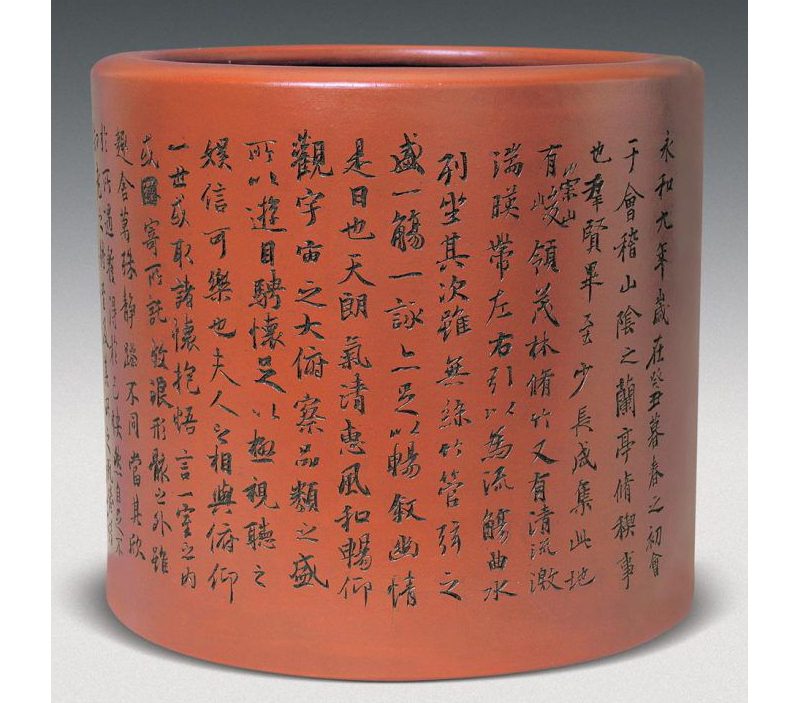 永和九年歲在癸丑暮春之初會
于會稽山陰之蘭亭脩稧事
也羣賢畢至少長咸集此地
有崇山峻領茂林脩竹又有清流激
湍暎帶左右引以為流觴曲水
列坐其次雖無絲竹管弦之
盛一觴一詠亦足以暢敘幽情
是日也天朗氣清惠風和暢仰
觀宇宙之大俯察品類之盛
所以遊目騁懷足以極視聽之
娛信可樂也夫人之相與俯仰
一世或取諸懷抱悟言一室之內
或因寄所託放浪形骸之外雖
趣舍萬殊靜躁不同當其欣
於所遇蹔得於己快然自足不